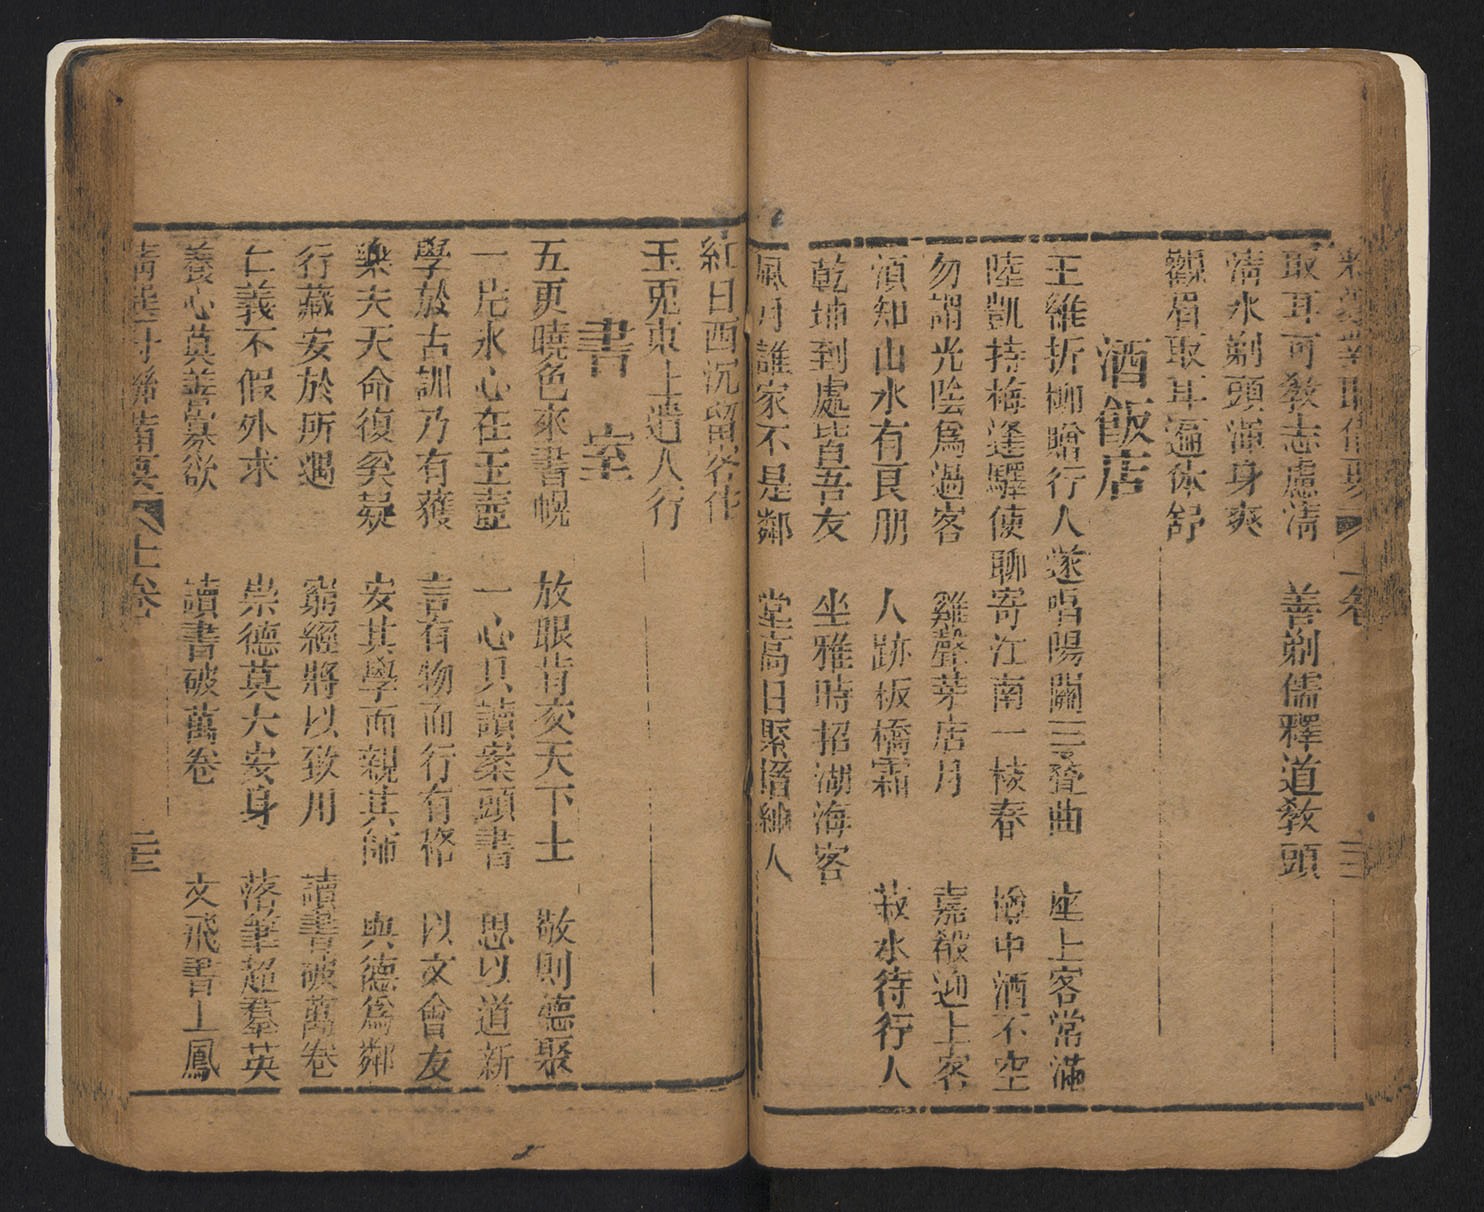 取耳可敎志慮淸　善剃儒釋道敎頭
淸水剃頭渾身爽
觀眉取耳遍体舒
酒飯店
王維折柳贈行人遂唱陽關三疊曲　座上客常滿
陸凱持梅逢驛使聊寄江南一枝春　樽中酒不空
勿謂光陰爲過客　雞聲茅店月　嘉殽迎上客
須知山水有良朋　人跡板橋霜　菽水待行人
乾坤到處皆吾友　坐雅時招湖海客
風月誰家不是鄰　堂高日聚搢紳人
紅日西沉留客住
玉兎東上遣人行
書室
五更曉色來書幌　放眼肯交天下士　敬則德聚
一片氷心在玉壺　一心只讀案頭書　思以道新
學於古訓乃有獲　言有物而行有格　以文會友
樂夫天命復奚疑　安其學而親其師　與德爲鄰
行藏安於所遇　窮經將以致用　讀書破萬卷
仁義不假外求　崇德莫大安身　落筆超羣英
養心莫善寡欲　讀書破萬卷　文飛書上鳳
上卷